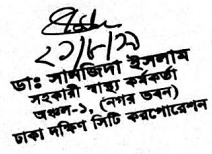 ২১/৮/২১
ডাঃ সানজিদা ইসলাম
সহকারী স্বাস্থ্য কর্মকর্তা
অঞ্চল-১, (নগর ভবন)
ঢাকা দক্ষিণ সিটি করপোরেশন